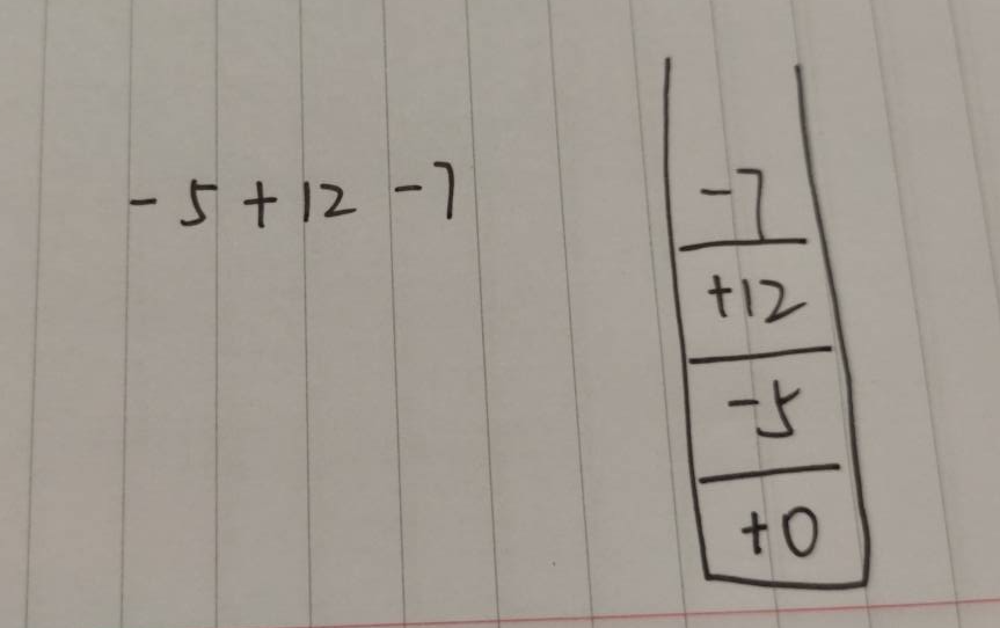 -5+12-7
-7
+12
-5
+0